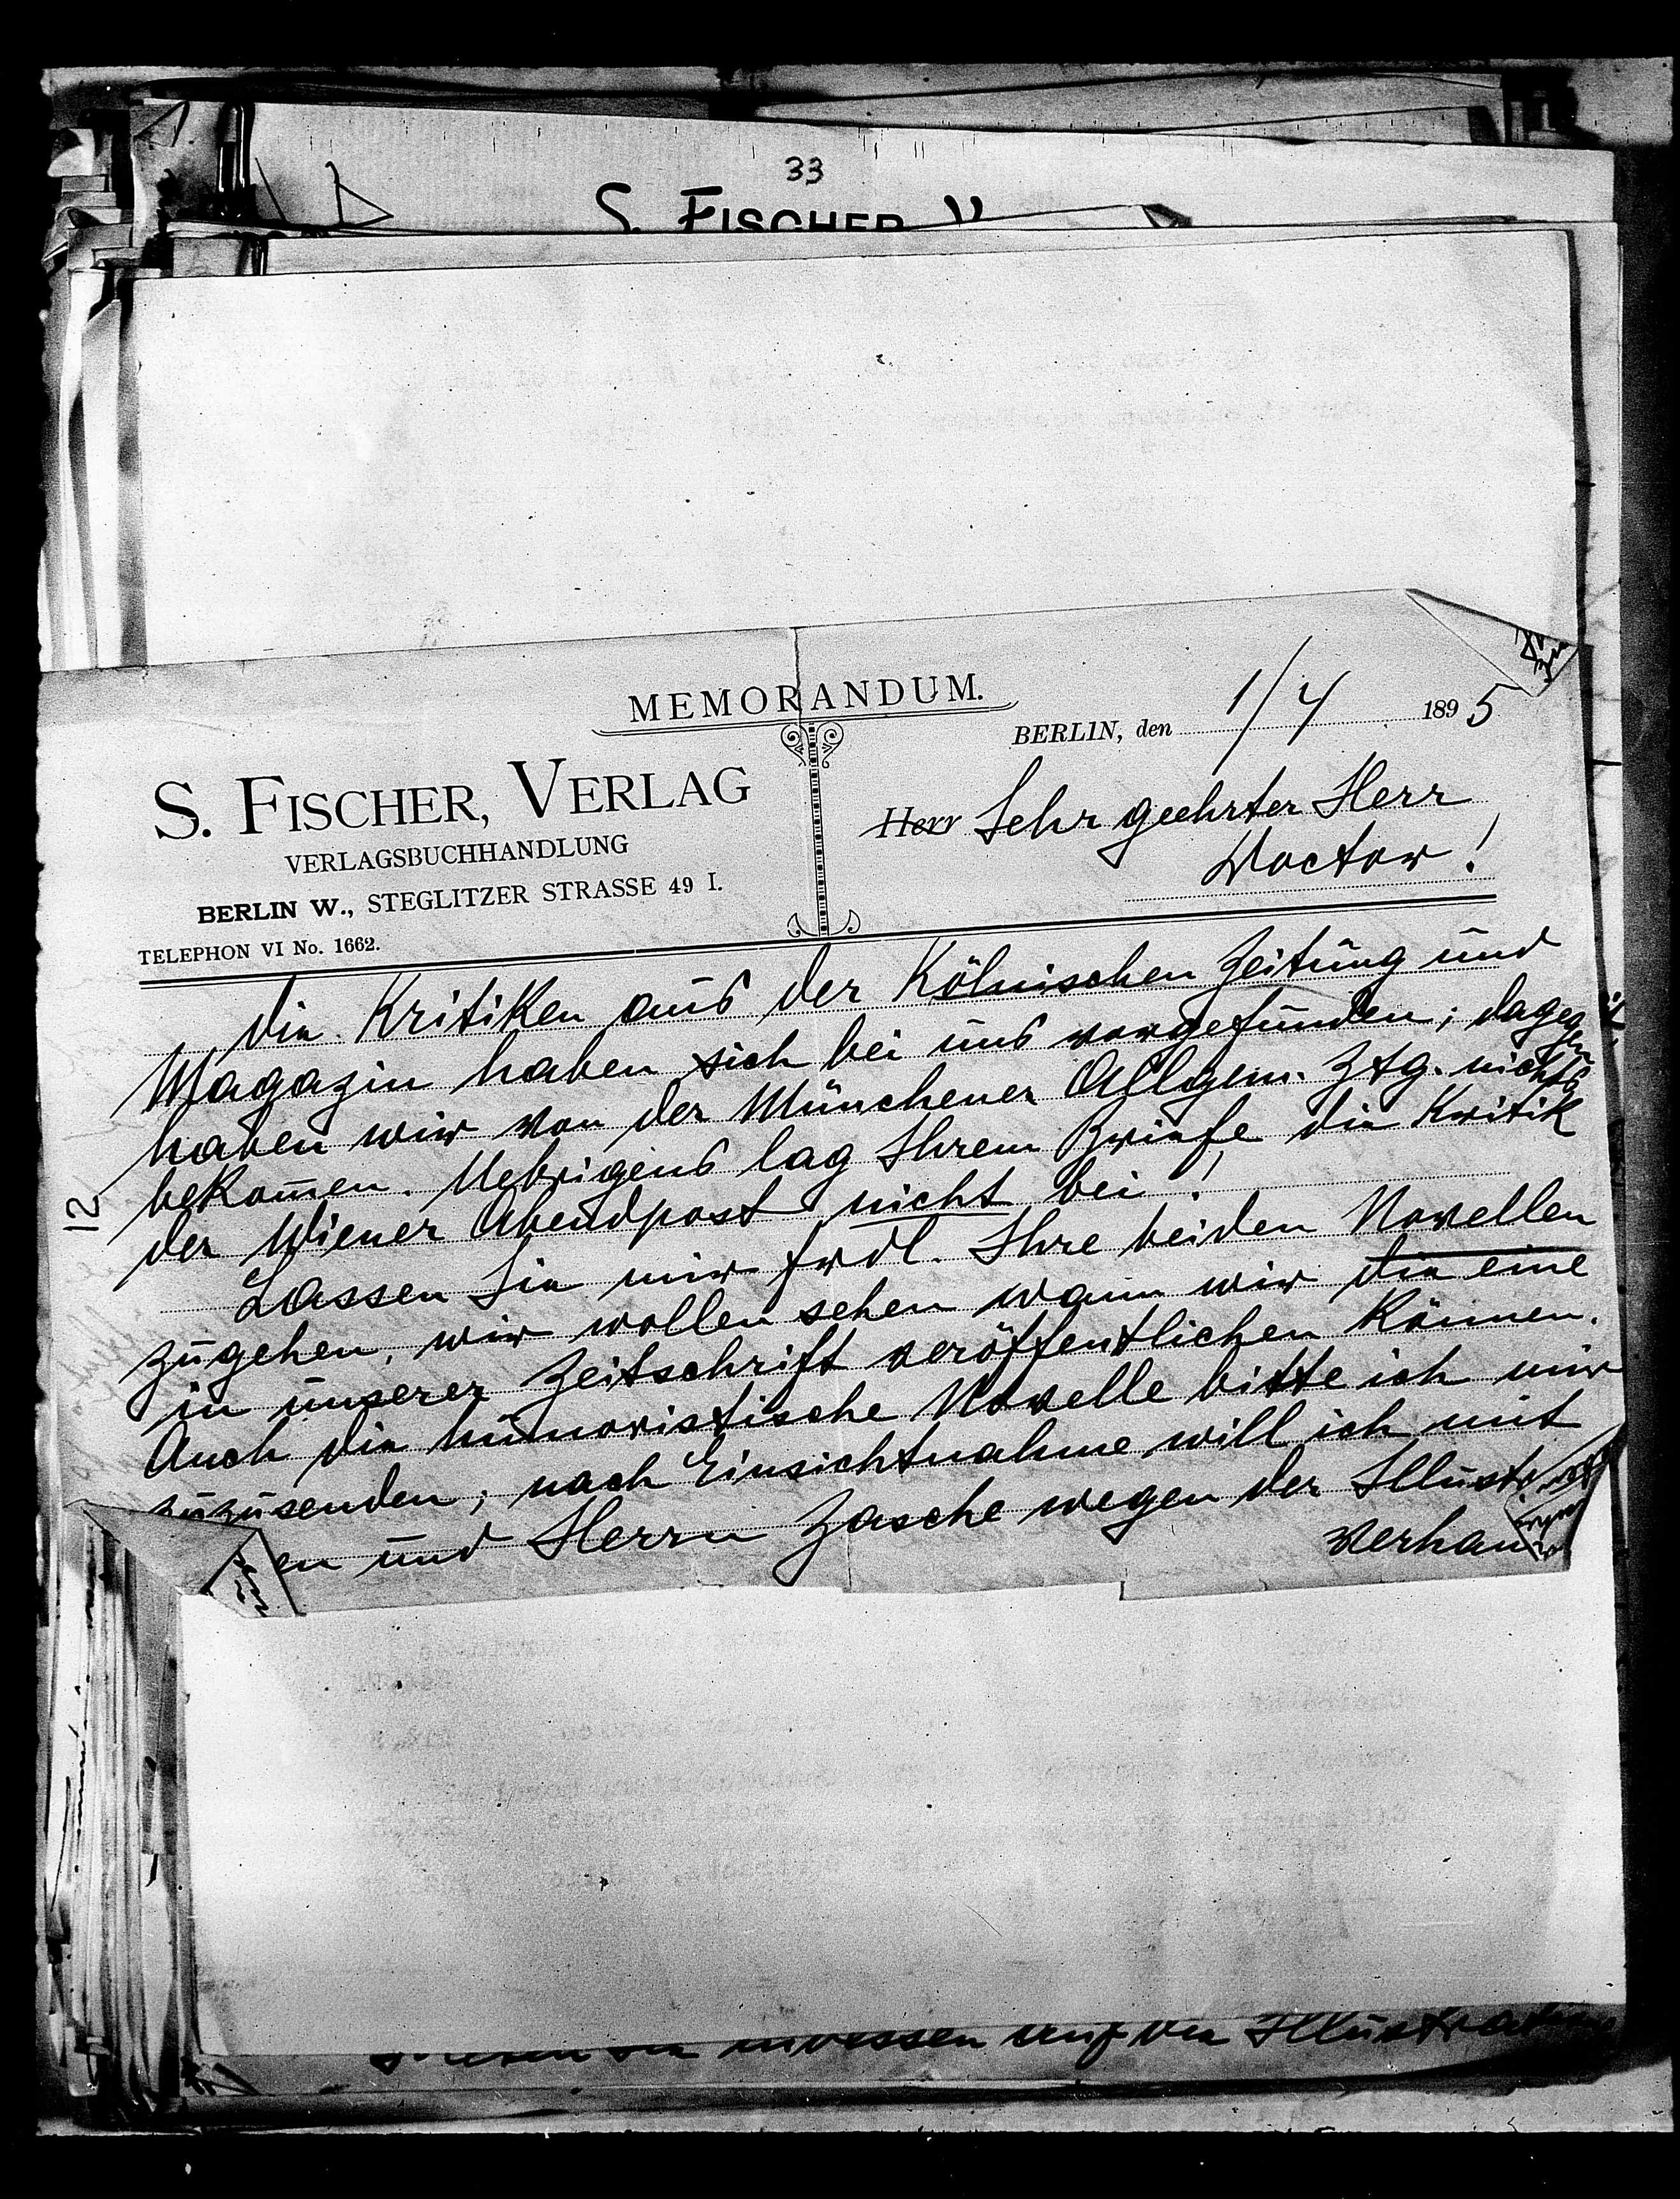 33
S. FISCHER V
MEMORANDUM.
BERLIN, den 1/4 1895
S. FISCHER, VERLAG
VERLAGSBUCHHANDLUNG
BERLIN W., STEGLITZER STRASSE 49 I.
TELEPHON VI No. 1662.
Herr Sehr geehrter Herr
Doctor!
12
Die Kritiken aus der Kölnischen Zeitung und
Magazin haben sich bei uns vorgefunden; dagegen
haben wir von der Münchener Allgem. Ztg. nichts
bekom̅en. Uebrigens lag Ihrem Briefe die Kritik
der Wiener Abendpost nicht bei!
Lassen Sie mir frdl. Ihre beiden Novellen
zugehen, wir wollen sehen wann wir die eine
in unserer Zeitschrift veröffentlichen können.
Auch die humoristische Novelle bitte ich mir
zuzusenden; nach Einsichtnahme will ich mit
en und Herrn Zasche wegen der Illustr
verhan
indessen auf die Illustrat